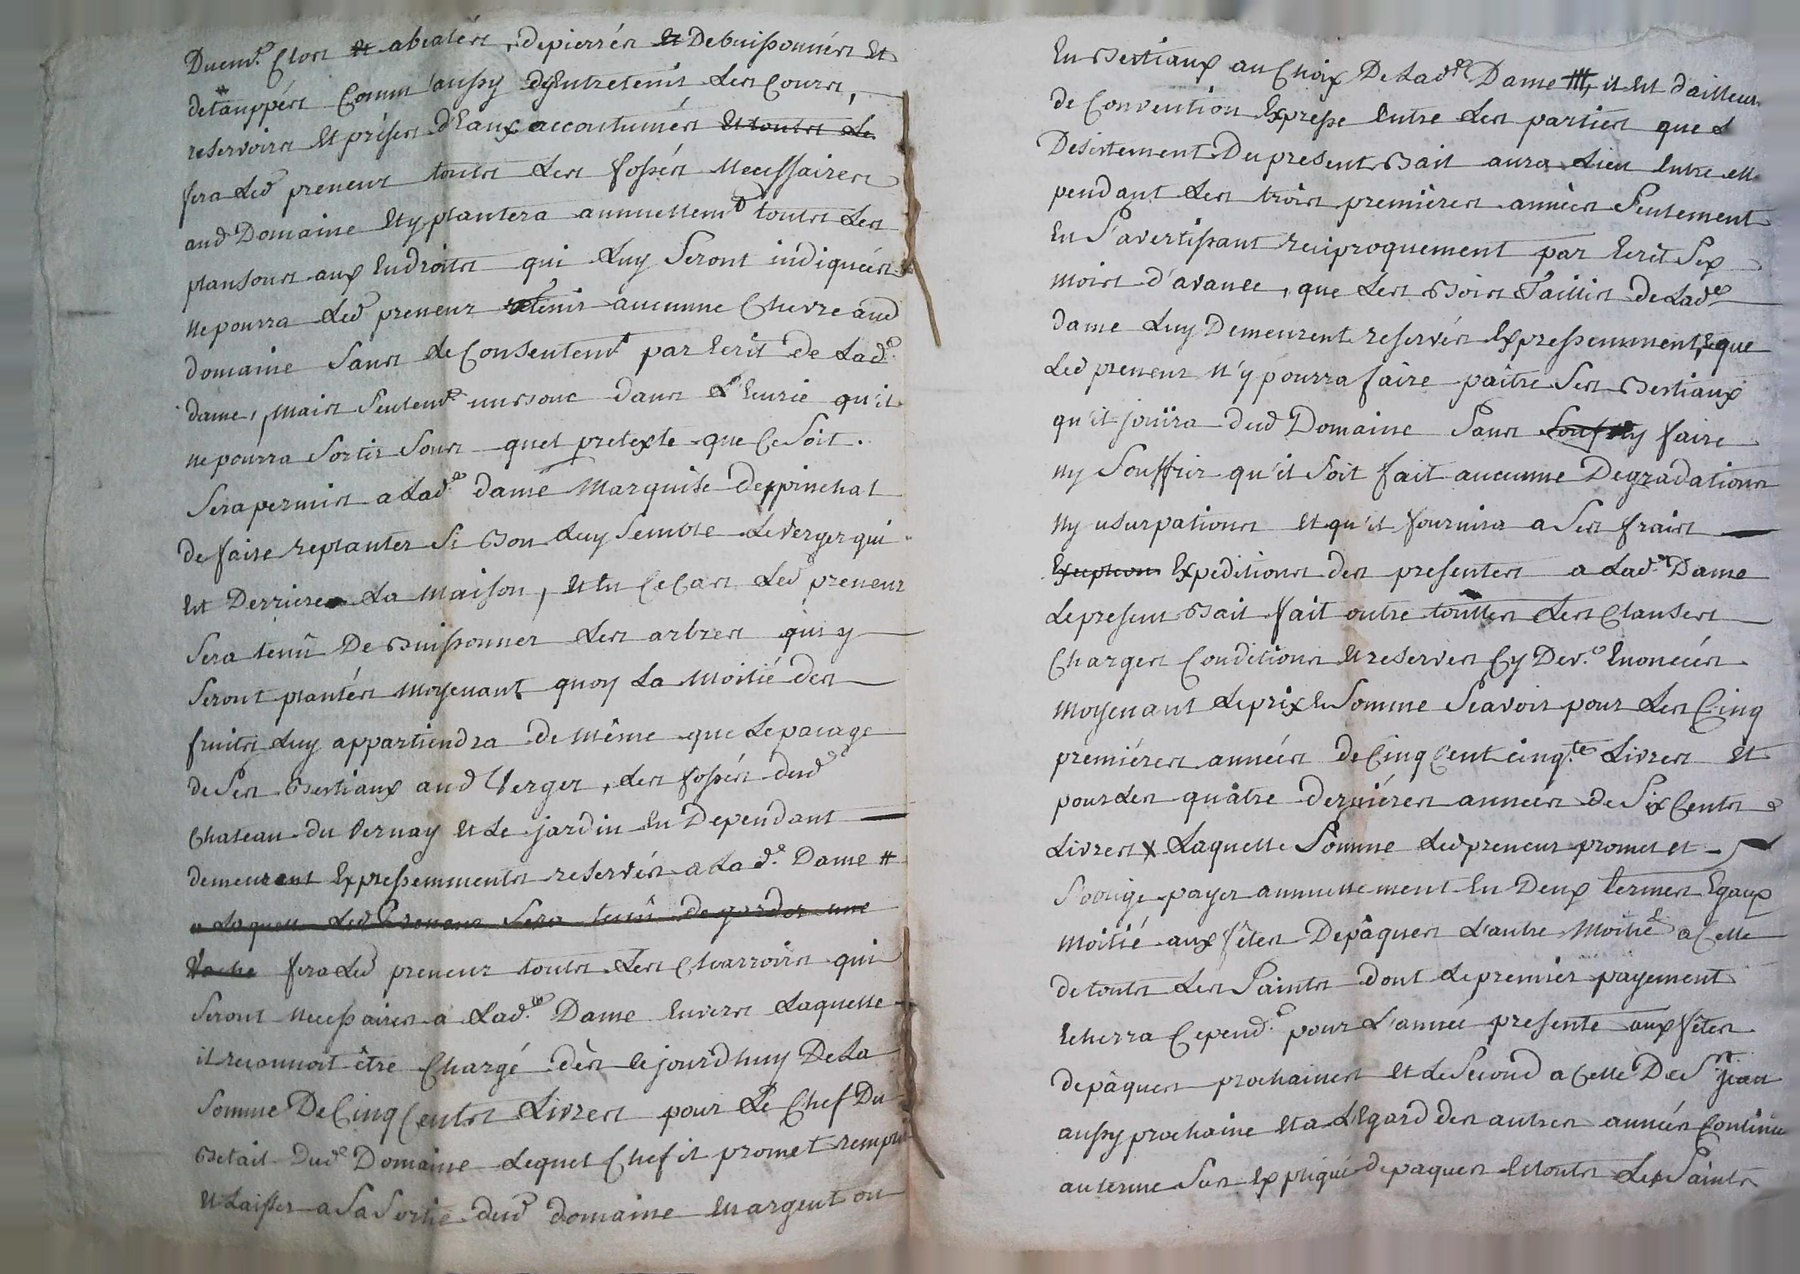 Duem.t Clos et abiatés, depierrés et Debuissonnés Et
detauppés Comm'aussy dEntretenir Les Cours,
reservoirs Et prises d'Eaux accoutumés Et toutes Le
fera Led preneur toutes Les fossés Necessaires
aud Domaine Et y plantera annuellem.t touts Les
plansons aux Endroits qui Luy Seront indiqués
ne pourra Led preneur tenir aucunne Chevre aud
domaine Sans Le Consentem.t par Ecrit de Lad.e
dame, mais Seulem.t un bouc dans L'Eurie qu'il
ne pourra Sortir Sous quel pretexte que Ce Soit.
Sera permis a Lad.e dame Marquise despinchal
de faire replanter Si Bon Luy Semble Le Verger qui
Est Derriere La Maison, Et En Ce Cas Led preneur
Sera tenû De Buissonner Les arbres qui y
Seront plantés Moyenant quoy La Moitié des
fruits Luy appartiendra de Même que Le pacage
de Ses Bestiaux aud Verger, Les fossés dud
Chateau du Vernay Et Le jardin En Dependant
demeurent Expressemments reservés a Lad.e Dame #
a Laquelle Led Preneur Sera tenû de garder une
Vache fera Led preneur touts Les Charrois qui
Seront Necessaires a Lad.e Dame Envers Laquelle
il reconnoit être Chargé dès Cejourd'huy De La
Somme De Cinq Cents Livres pour Le Chef Du
Betail Dud Domaine Lequel Chef il promet remplir
Et Laisser a Sa Sortie dud domaine En argent ou
En Bestiaux au Choix De Lad.e Dame #, il Est d'ailleurs
de Convention Expresse Entre Les parties que L
Desistement Du present Bail aura Lieu Entre Elle
pendant Les trois premieres années Seulement
En S'avertissant reciproquement par Ecrit Six
mois d'avance, que Les Bois Taillis de Lad.e
dame Luy Demeurent reservés Expressemment, Et que
Led preneur N'y pourra faire paître Ses Bestiaux
qu'il joüira dud Domaine Sans Souf Ny faire
ny Souffrir qu'il Soit fait aucunne Degradations
Ny usurpations Et qu'il fournira a Ses frais
Expeditions des presentes a Lad.e Dame
Le present Bail fait outre touttes Les Clauses
Charges Conditions Et reserves Cy Dev.t Enoncées
Moyenant Le prix Et Somme Scavoir pour Les Cinq
premiéres années de Cinq Cent cinq.te Livres Et
pour Les quâtre derniéres années de Six Cents
Livres Laquelle Somme Led preneur promet et
S'oblige payer annuellement En Deux termes Egaux
Moitié aux fêtes De pâques L'autre Moitié a Celle
de touts Les Saints dont Le premier payement
Echerra Cepend.t pour L'année presente aux fêtes
de pâques prochaines Et Le Second a Celle De S.nt Jean
aussy prochaine Et a L'Egard des autres années Continu
au terme Sus Expliqué de paques Et touts Les Saints